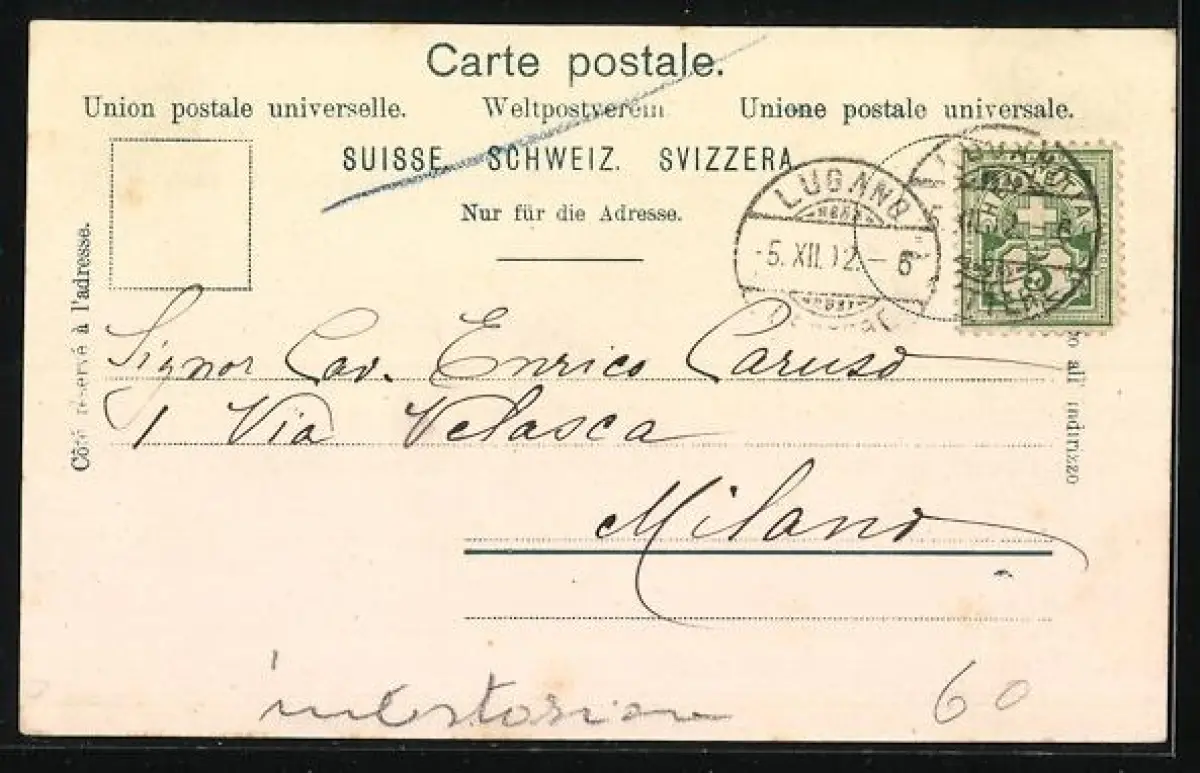 Carte postale.
Union postale universelle. Weltpostverein Unione postale universale.
SUISSE. SCHWEIZ. SVIZZERA
Nur für die Adresse.
Côté réservé à l'adresse.
LUGANO
-5.XII.02.-6
5
Signor Cav. Enrico Caruso
1 Via Velasca
Milano
all' indirizzo
60